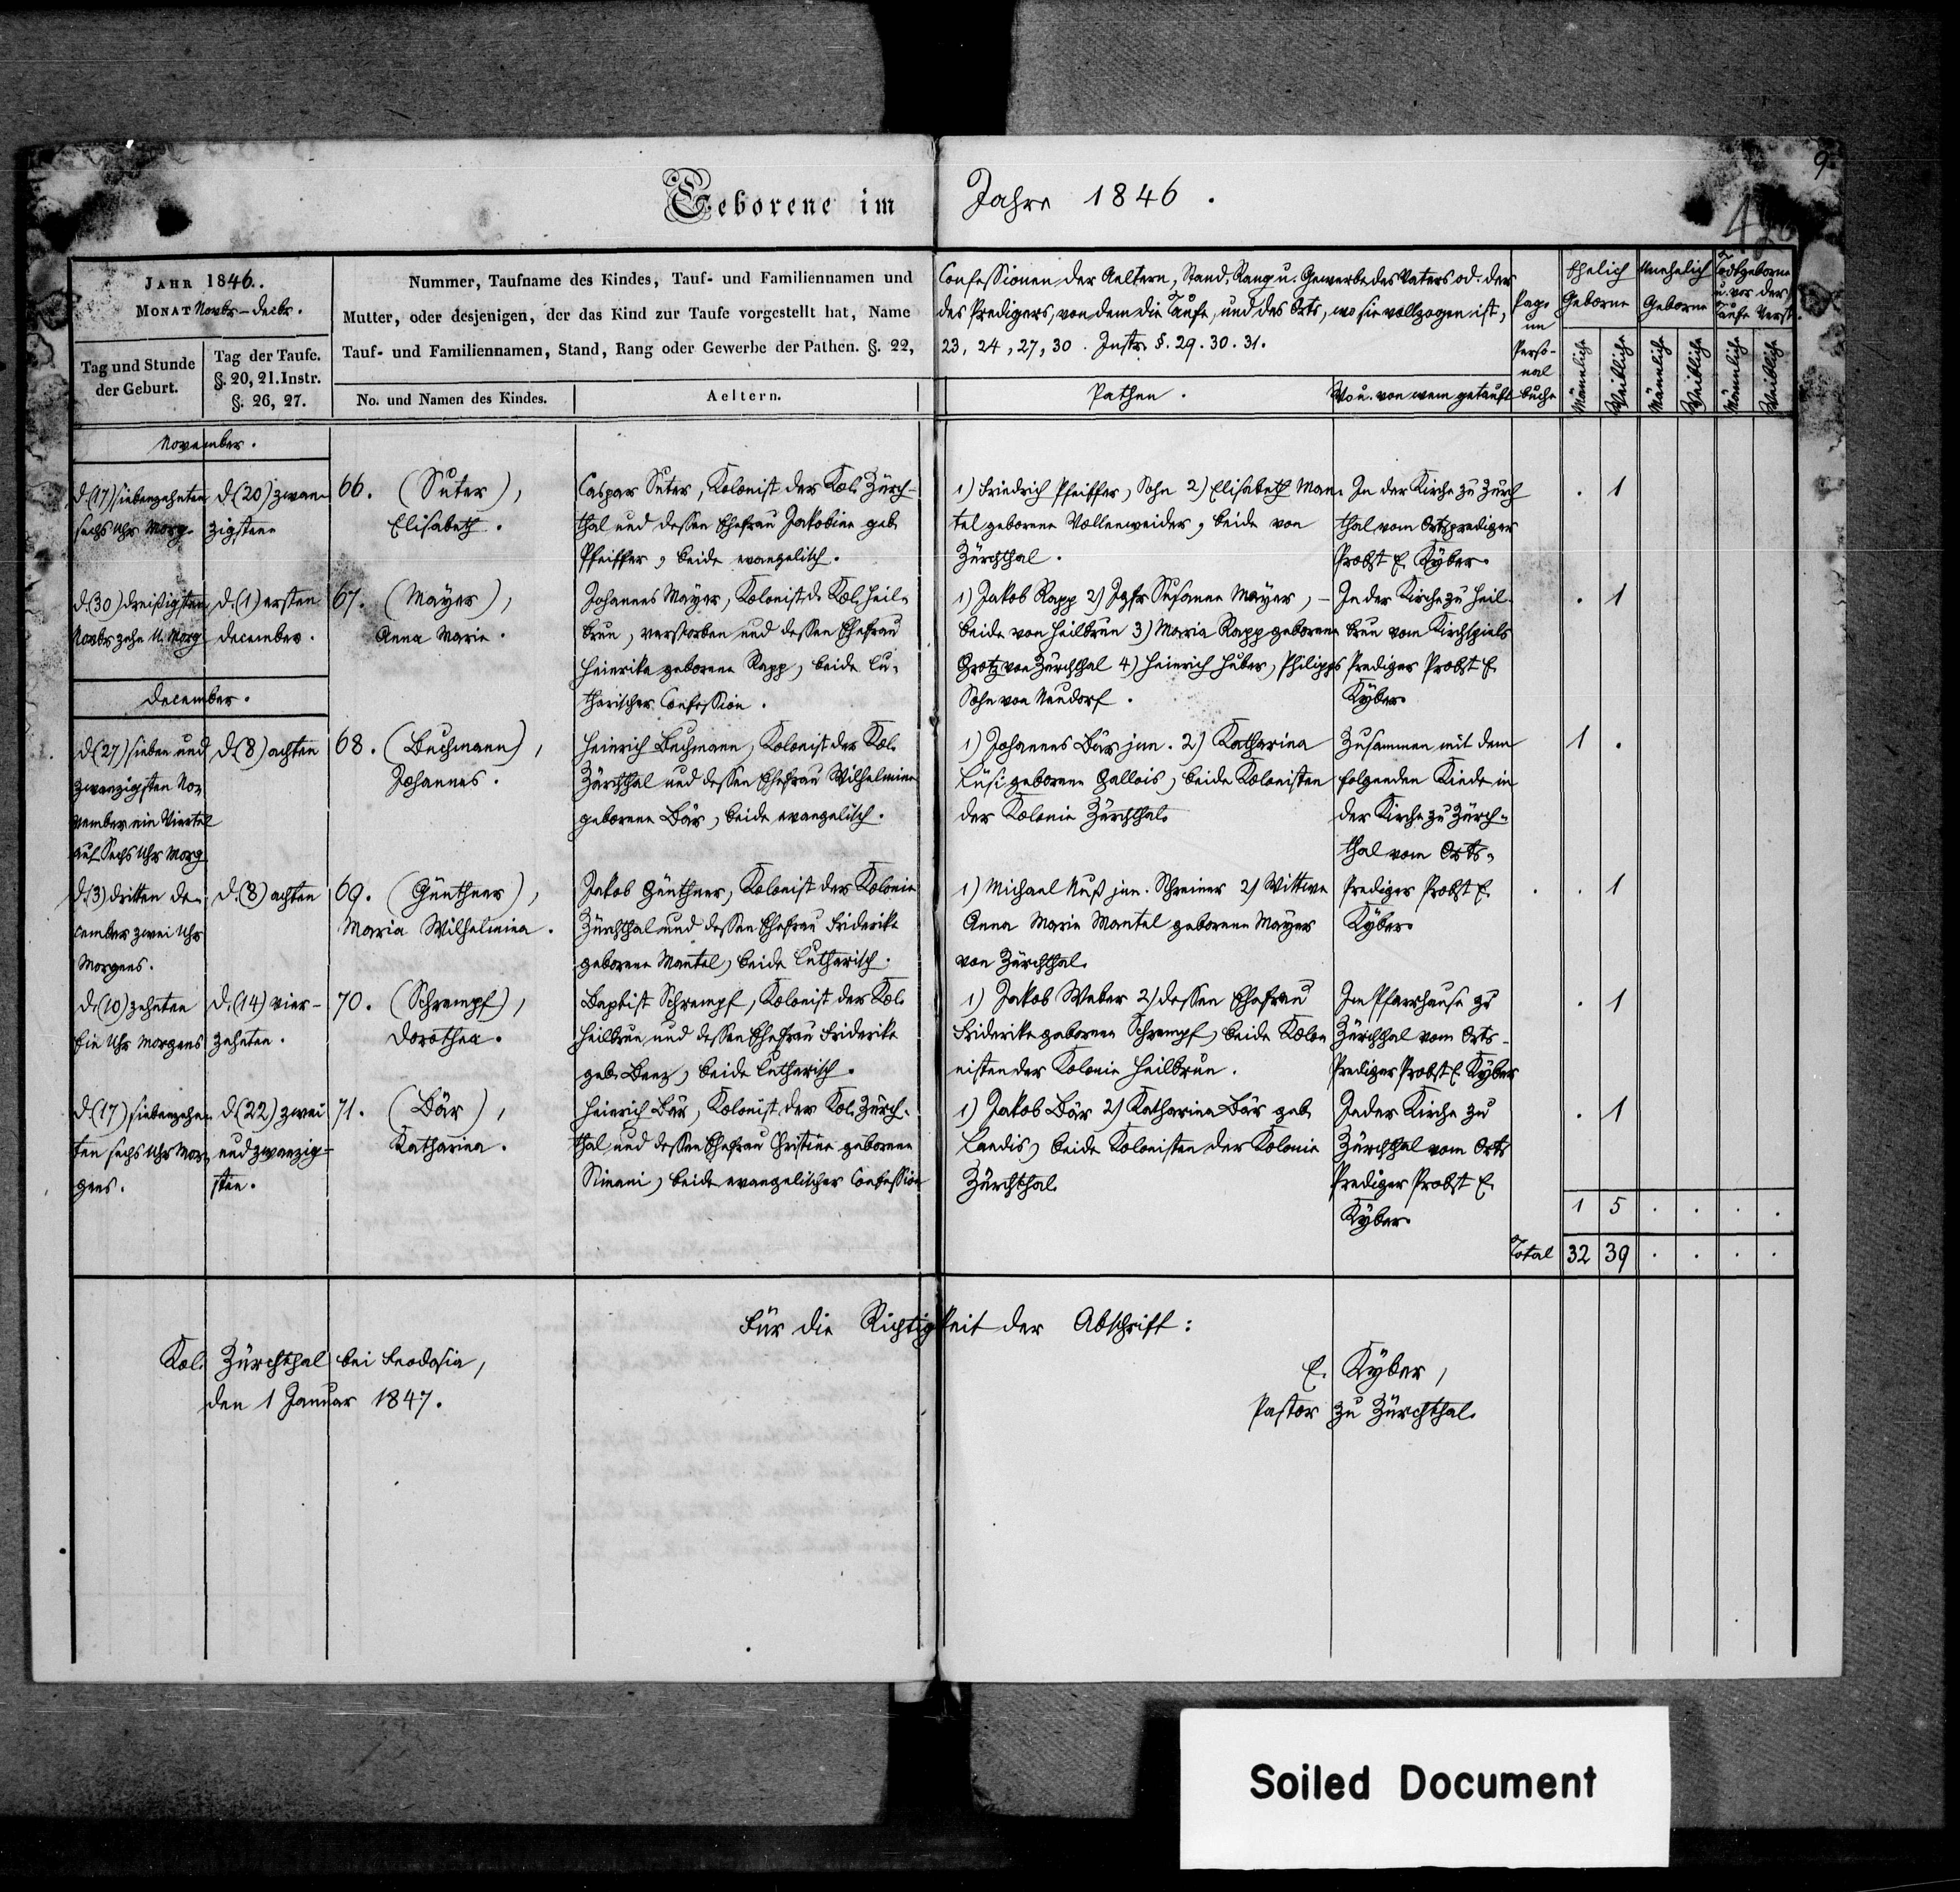 9.
Geborene im Jahre 1846.
JAHR 1846.
MONAT Novbr-Decbr.
Tag und Stunde
der Geburt.
Tag der Taufe.
§. 20, 21. Instr.
§. 26, 27.
Nummer, Taufname des Kindes, Tauf- und Familiennamen und
Mutter, oder desjenigen, der das Kind zur Taufe vorgestellt hat, Name
Tauf- und Familiennamen, Stand, Rang oder Gewerbe der Pathen. §. 22,
No. und Namen des Kindes.
Aeltern.
Confessionen der Aeltern, Stand, Rang u. Gewerbe des Vaters od. der
des Predigers, von dem die Taufe, und des Orts, wo sie vollzogen ist,
23, 24, 27, 30. Instr. §. 29. 30. 31.
Pathen.
Wo u. von wem getauft
Pag.
im
Perso-
nal
buche
Ehelich
Geborne
Unehelich
Geborne
Todtgeborne
u. vor der
Taufe Verst.
Männliche
Weibliche
Männliche
Weibliche
Männliche
Weibliche
November.
d. (17) siebenzehnten
sechs Uhr Morg.
d. (20) zwan-
zigsten
66. (Suter),
Elisabeth.
Caspar Suter, Kolonist der Kol. Zürch-
thal und dessen Ehefrau Jakobine geb.
Pfeiffer, beide evangelisch.
1) Friedrich Pfeiffer, Sohn 2) Elisabeth Man-
tel geborene Vollenweider, beide von
Zürchthal.
In der Kirche zu Zürch
thal vom Ortsprediger
Probst E. Kyber.
. 1
d. (30) dreißigsten
Novbr zehn U. Morg.
d. (1) ersten
December.
67. (Mayer),
Anna Marie.
Johannes Mayer, Kolonist d. Kol. Heil-
brun, verstorben und dessen Ehefrau
Heinrike geborene Rapp, beide lu-
therischer Confession.
1) Jakob Rapp 2) Jgfr Susanna Mayer, –
beide von Heilbrun 3) Maria Rapp geborene
Grotz von Zürchthal 4) Heinrich Huber, Philipps
Sohn von Neudorf.
In der Kirche zu Heil-
brun vom Kirchspiels
Prediger Probst E.
Kyber.
. 1
December.
d. (27) sieben und
zwanzigsten No-
vember ein Viertel
auf Sechs Uhr Morg.
d. (8) achten
68. (Buchmann),
Johannes.
Heinrich Buchmann, Kolonist der Kol.
Zürchthal und dessen Ehefrau Wilhelmine
geborene Bär, beide evangelisch.
1) Johannes Bär jun. 2) Katharina
Lüsi geborene Gallois, beide Kolonisten
der Kolonie Zürchthal.
Zusammen mit dem
folgenden Kinde in
der Kirche zu Zürch-
thal vom Orts-
1 .
d. (3) dritten De-
cember zwei Uhr
Morgens.
d. (8) achten
69. (Günthner),
Maria Wilhelmina.
Jakob Günthner, Kolonist der Kolonie
Zürchthal und dessen Ehefrau Friderike
geborene Mantel, beide lutherisch.
1) Michael Nuß jun. Schreiner 2) Wittwe
Anna Marie Mantel geborene Mayer
von Zürchthal.
Prediger Probst E.
Kyber.
. 1
d. (10) zehnten
Ein Uhr Morgens
d. (14) vier-
zehnten.
70. (Schrempf),
Dorothea.
Baptist Schrempf, Kolonist der Kol.
Heilbrun und dessen Ehefrau Friderike
geb. Benz, beide lutherisch.
1) Jakob Weber 2) dessen Ehefrau
Friderike geborene Schrempf, beide Kolon
nisten der Kolonie Heilbrun.
Im Pfarrhause zu
Zürchthal vom Orts-
Prediger Probst E. Kyber
. 1
d. (17) siebenzehn-
ten sechs Uhr Mor-
gens.
d. (22) zwei
und zwanzig-
sten.
71. (Bär),
Katharina.
Heinrich Bär, Kolonist der Kol. Zürch-
thal und dessen Ehefrau Christine geborene
Simani, beide evangelischer Confession
1) Jakob Bär 2) Katharina Bär geb.
Landis, beide Kolonisten der Kolonie
Zürchthal.
In der Kirche zu
Zürchthal vom Orts
Prediger Probst E.
Kyber.
. 1
1 5 . . . .
Total 32 39 . . . .
Für die Richtigkeit der Abschrift:
Kol. Zürchthal bei Feodosia,
den 1 Januar 1847.
E. Kyber,
Pastor zu Zürchthal.
Soiled Document